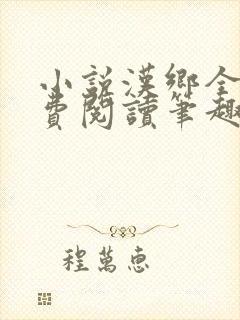 小說漢鄉全
費閱讀筆趣
程萬惠